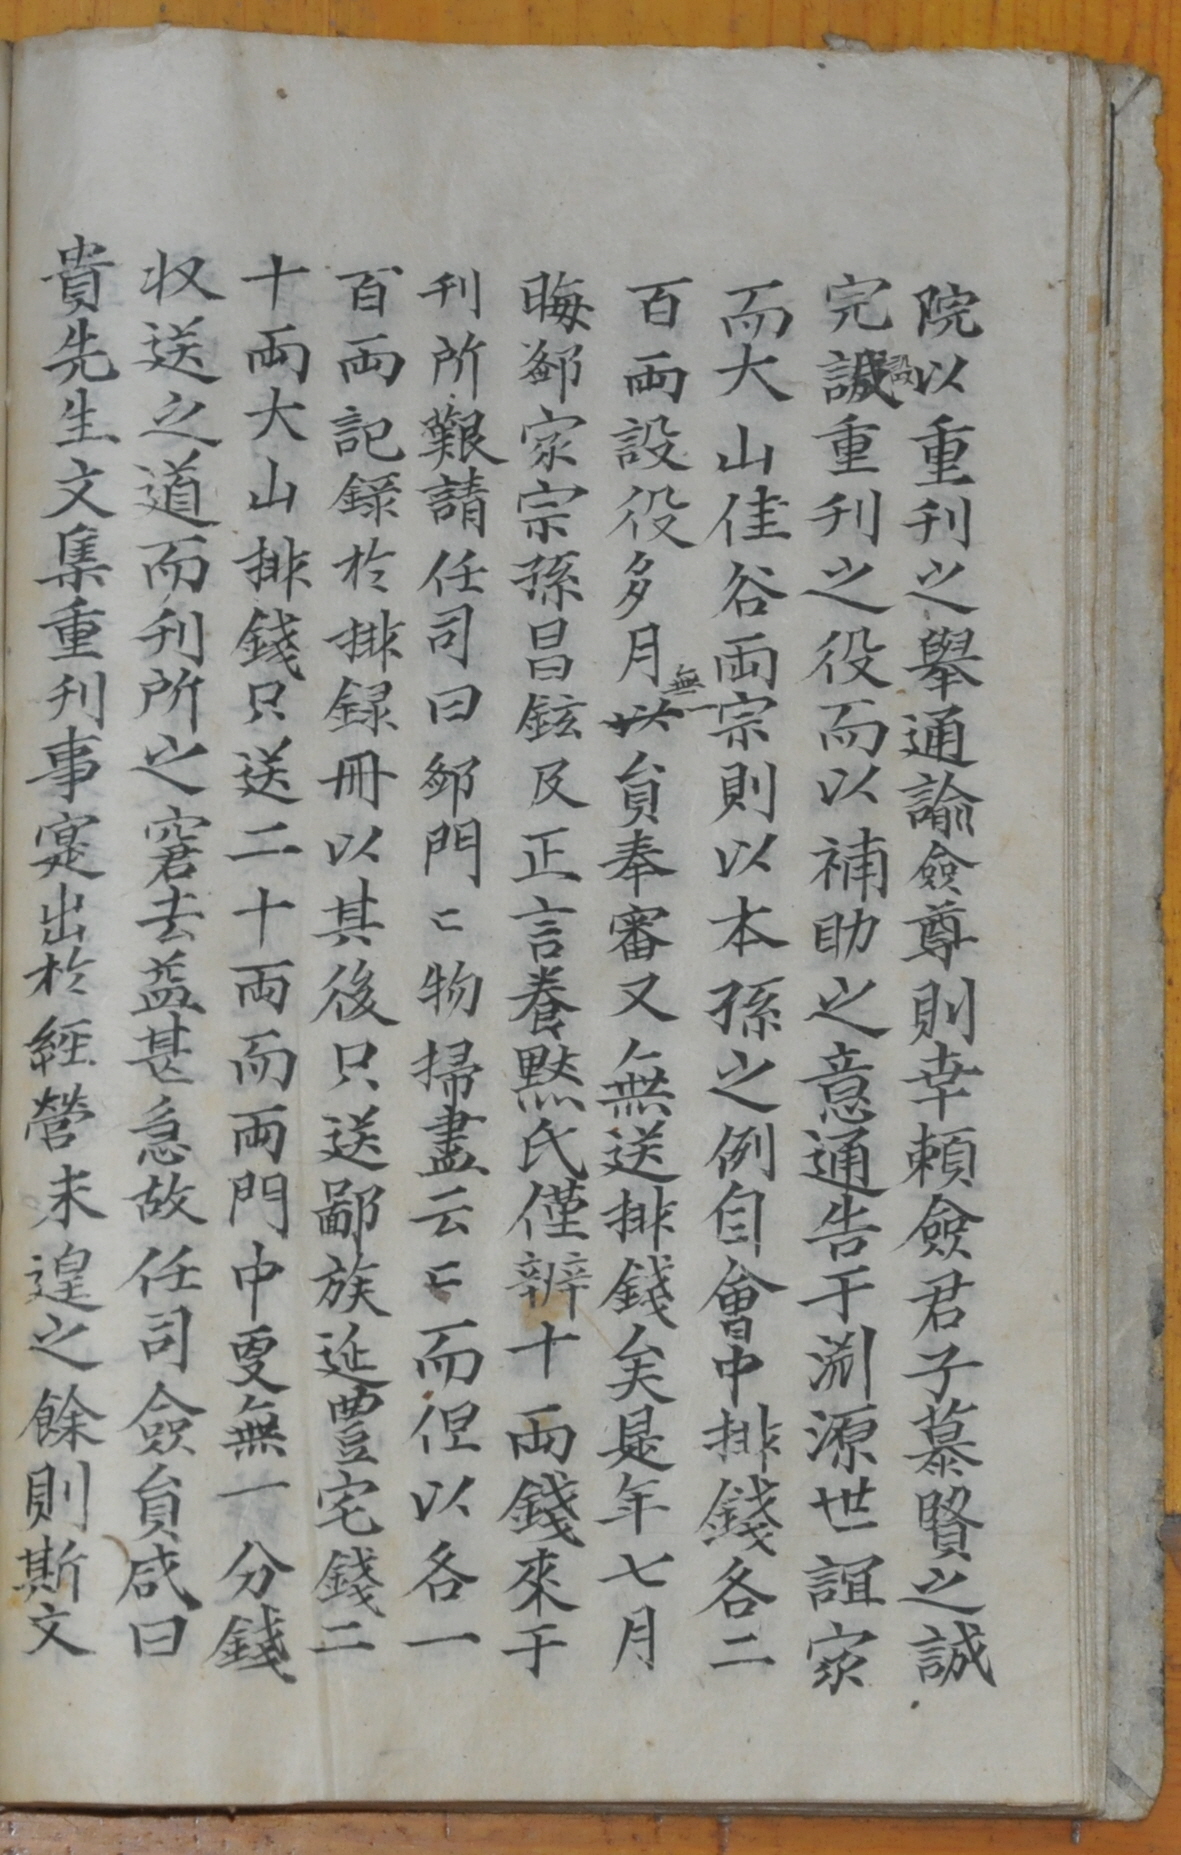 院以重刊之擧通諭僉尊則幸賴僉君子慕賢之誠
完設重刊之役而以補助之意通告于淵源世誼家
而大山佳谷両宗則以本孫之例自會中排錢各二
百両設役多月無一員奉審又無送排錢矣是年七月
晦鄒家宗孫昌鉉及正言養黙氏僅辦十両錢來于
刊所艱請任司曰鄒門〻物掃盡云〻而但以各一
百両記錄於排録冊以其後只送鄙族延豊宅錢二
十両大山排錢只送二十両而両門中更無一分錢
収送之道而刊所之窘去益甚急故任司僉員咸曰
貴先生文集重刊事寔出於經營未遑之餘則斯文